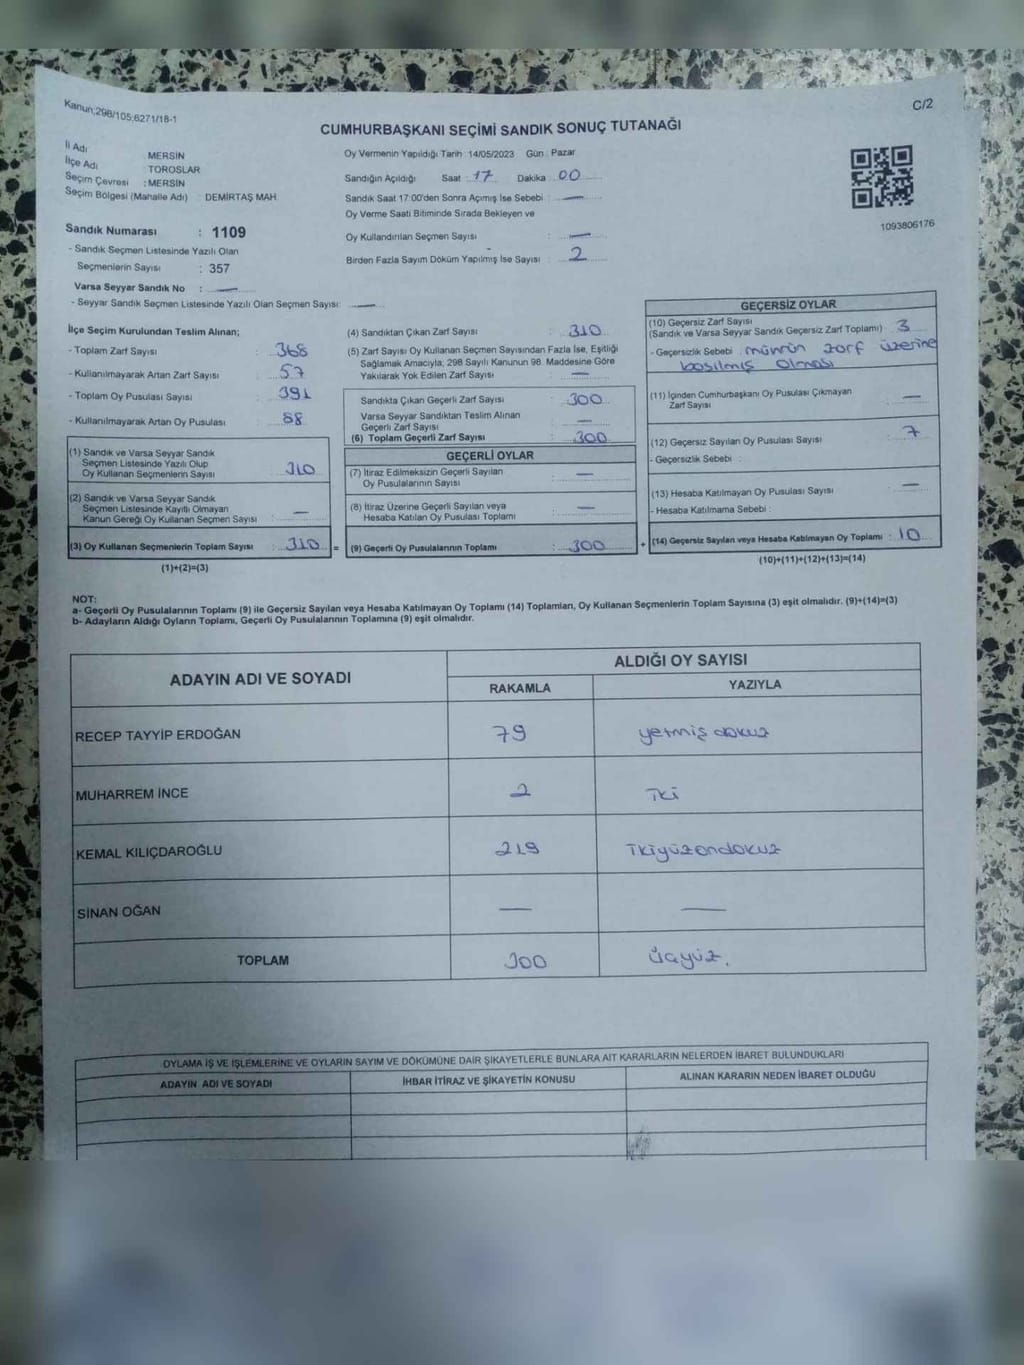 Kanun;298/105;6271/18-1
C/2
CUMHURBAŞKANI SEÇİMİ SANDIK SONUÇ TUTANAĞI
İl Adı MERSİN
İlçe Adı TOROSLAR
Seçim Çevresi : MERSİN
Seçim Bölgesi (Mahalle Adı) : DEMİRTAŞ MAH.
Sandık Numarası : 1109
- Sandık Seçmen Listesinde Yazılı Olan
Seçmenlerin Sayısı : 357
Varsa Seyyar Sandık No : —
- Seyyar Sandık Seçmen Listesinde Yazılı Olan Seçmen Sayısı: —
Oy Vermenin Yapıldığı Tarih :14/05/2023 Gün : Pazar
Sandığın Açıldığı Saat : 17 Dakika : 00
Sandık Saat 17:00'den Sonra Açımış İse Sebebi : —
Oy Verme Saati Bitiminde Sırada Bekleyen ve
Oy Kullandırılan Seçmen Sayısı : —
Birden Fazla Sayım Döküm Yapılmış İse Sayısı : 2
1093806176
İlçe Seçim Kurulundan Teslim Alınan;
- Toplam Zarf Sayısı : 368
- Kullanılmayarak Artan Zarf Sayısı : 57
- Toplam Oy Pusulası Sayısı : 391
- Kullanılmayarak Artan Oy Pusulası : 88
(1) Sandık ve Varsa Seyyar Sandık
Seçmen Listesinde Yazılı Olup
Oy Kullanan Seçmenlerin Sayısı : 310
(2) Sandık ve Varsa Seyyar Sandık
Seçmen Listesinde Kayıtlı Olmayan
Kanun Gereği Oy Kullanan Seçmen Sayısı : —
(3) Oy Kullanan Seçmenlerin Toplam Sayısı : 310 =
(1)+(2)=(3)
(4) Sandıktan Çıkan Zarf Sayısı : 310
(5) Zarf Sayısı Oy Kullanan Seçmen Sayısından Fazla İse, Eşitliği
Sağlamak Amacıyla; 298 Sayılı Kanunun 98. Maddesine Göre
Yakılarak Yok Edilen Zarf Sayısı : —
Sandıkta Çıkan Geçerli Zarf Sayısı : 300
Varsa Seyyar Sandıktan Teslim Alınan
Geçerli Zarf Sayısı : —
(6) Toplam Geçerli Zarf Sayısı : 300
GEÇERLİ OYLAR
(7) İtiraz Edilmeksizin Geçerli Sayılan
Oy Pusulalarının Sayısı : —
(8) İtiraz Üzerine Geçerli Sayılan veya
Hesaba Katılan Oy Pusulası Toplamı : —
(9) Geçerli Oy Pusulalarının Toplamı : 300 +
GEÇERSİZ OYLAR
(10) Geçersiz Zarf Sayısı
(Sandık ve Varsa Seyyar Sandık Geçersiz Zarf Toplamı) : 3
- Geçersizlik Sebebi : mührün zarf üzerine
basılmış olması
(11) İçinden Cumhurbaşkanı Oy Pusulası Çıkmayan
Zarf Sayısı : —
(12) Geçersiz Sayılan Oy Pusulası Sayısı : 7
- Geçersizlik Sebebi :
(13) Hesaba Katılmayan Oy Pusulası Sayısı : —
- Hesaba Katılmama Sebebi :
(14) Geçersiz Sayılan veya Hesaba Katılmayan Oy Toplamı : 10
(10)+(11)+(12)+(13)=(14)
NOT:
a- Geçerli Oy Pusulalarının Toplamı (9) ile Geçersiz Sayılan veya Hesaba Katılmayan Oy Toplamı (14) Toplamları, Oy Kullanan Seçmenlerin Toplam Sayısına (3) eşit olmalıdır. (9)+(14)=(3)
b- Adayların Aldığı Oyların Toplamı, Geçerli Oy Pusulalarının Toplamına (9) eşit olmalıdır.
ADAYIN ADI VE SOYADI
ALDIĞI OY SAYISI
RAKAMLA YAZIYLA
RECEP TAYYİP ERDOĞAN 79 yetmiş dokuz
MUHARREM İNCE 2 iki
KEMAL KILIÇDAROĞLU 219 ikiyüzondokuz
SİNAN OĞAN — —
TOPLAM 300 üçyüz.
OYLAMA İŞ VE İŞLEMLERİNE VE OYLARIN SAYIM VE DÖKÜMÜNE DAİR ŞİKAYETLERLE BUNLARA AİT KARARLARIN NELERDEN İBARET BULUNDUKLARI
ADAYIN ADI VE SOYADI İHBAR İTİRAZ VE ŞİKAYETİN KONUSU ALINAN KARARIN NEDEN İBARET OLDUĞU